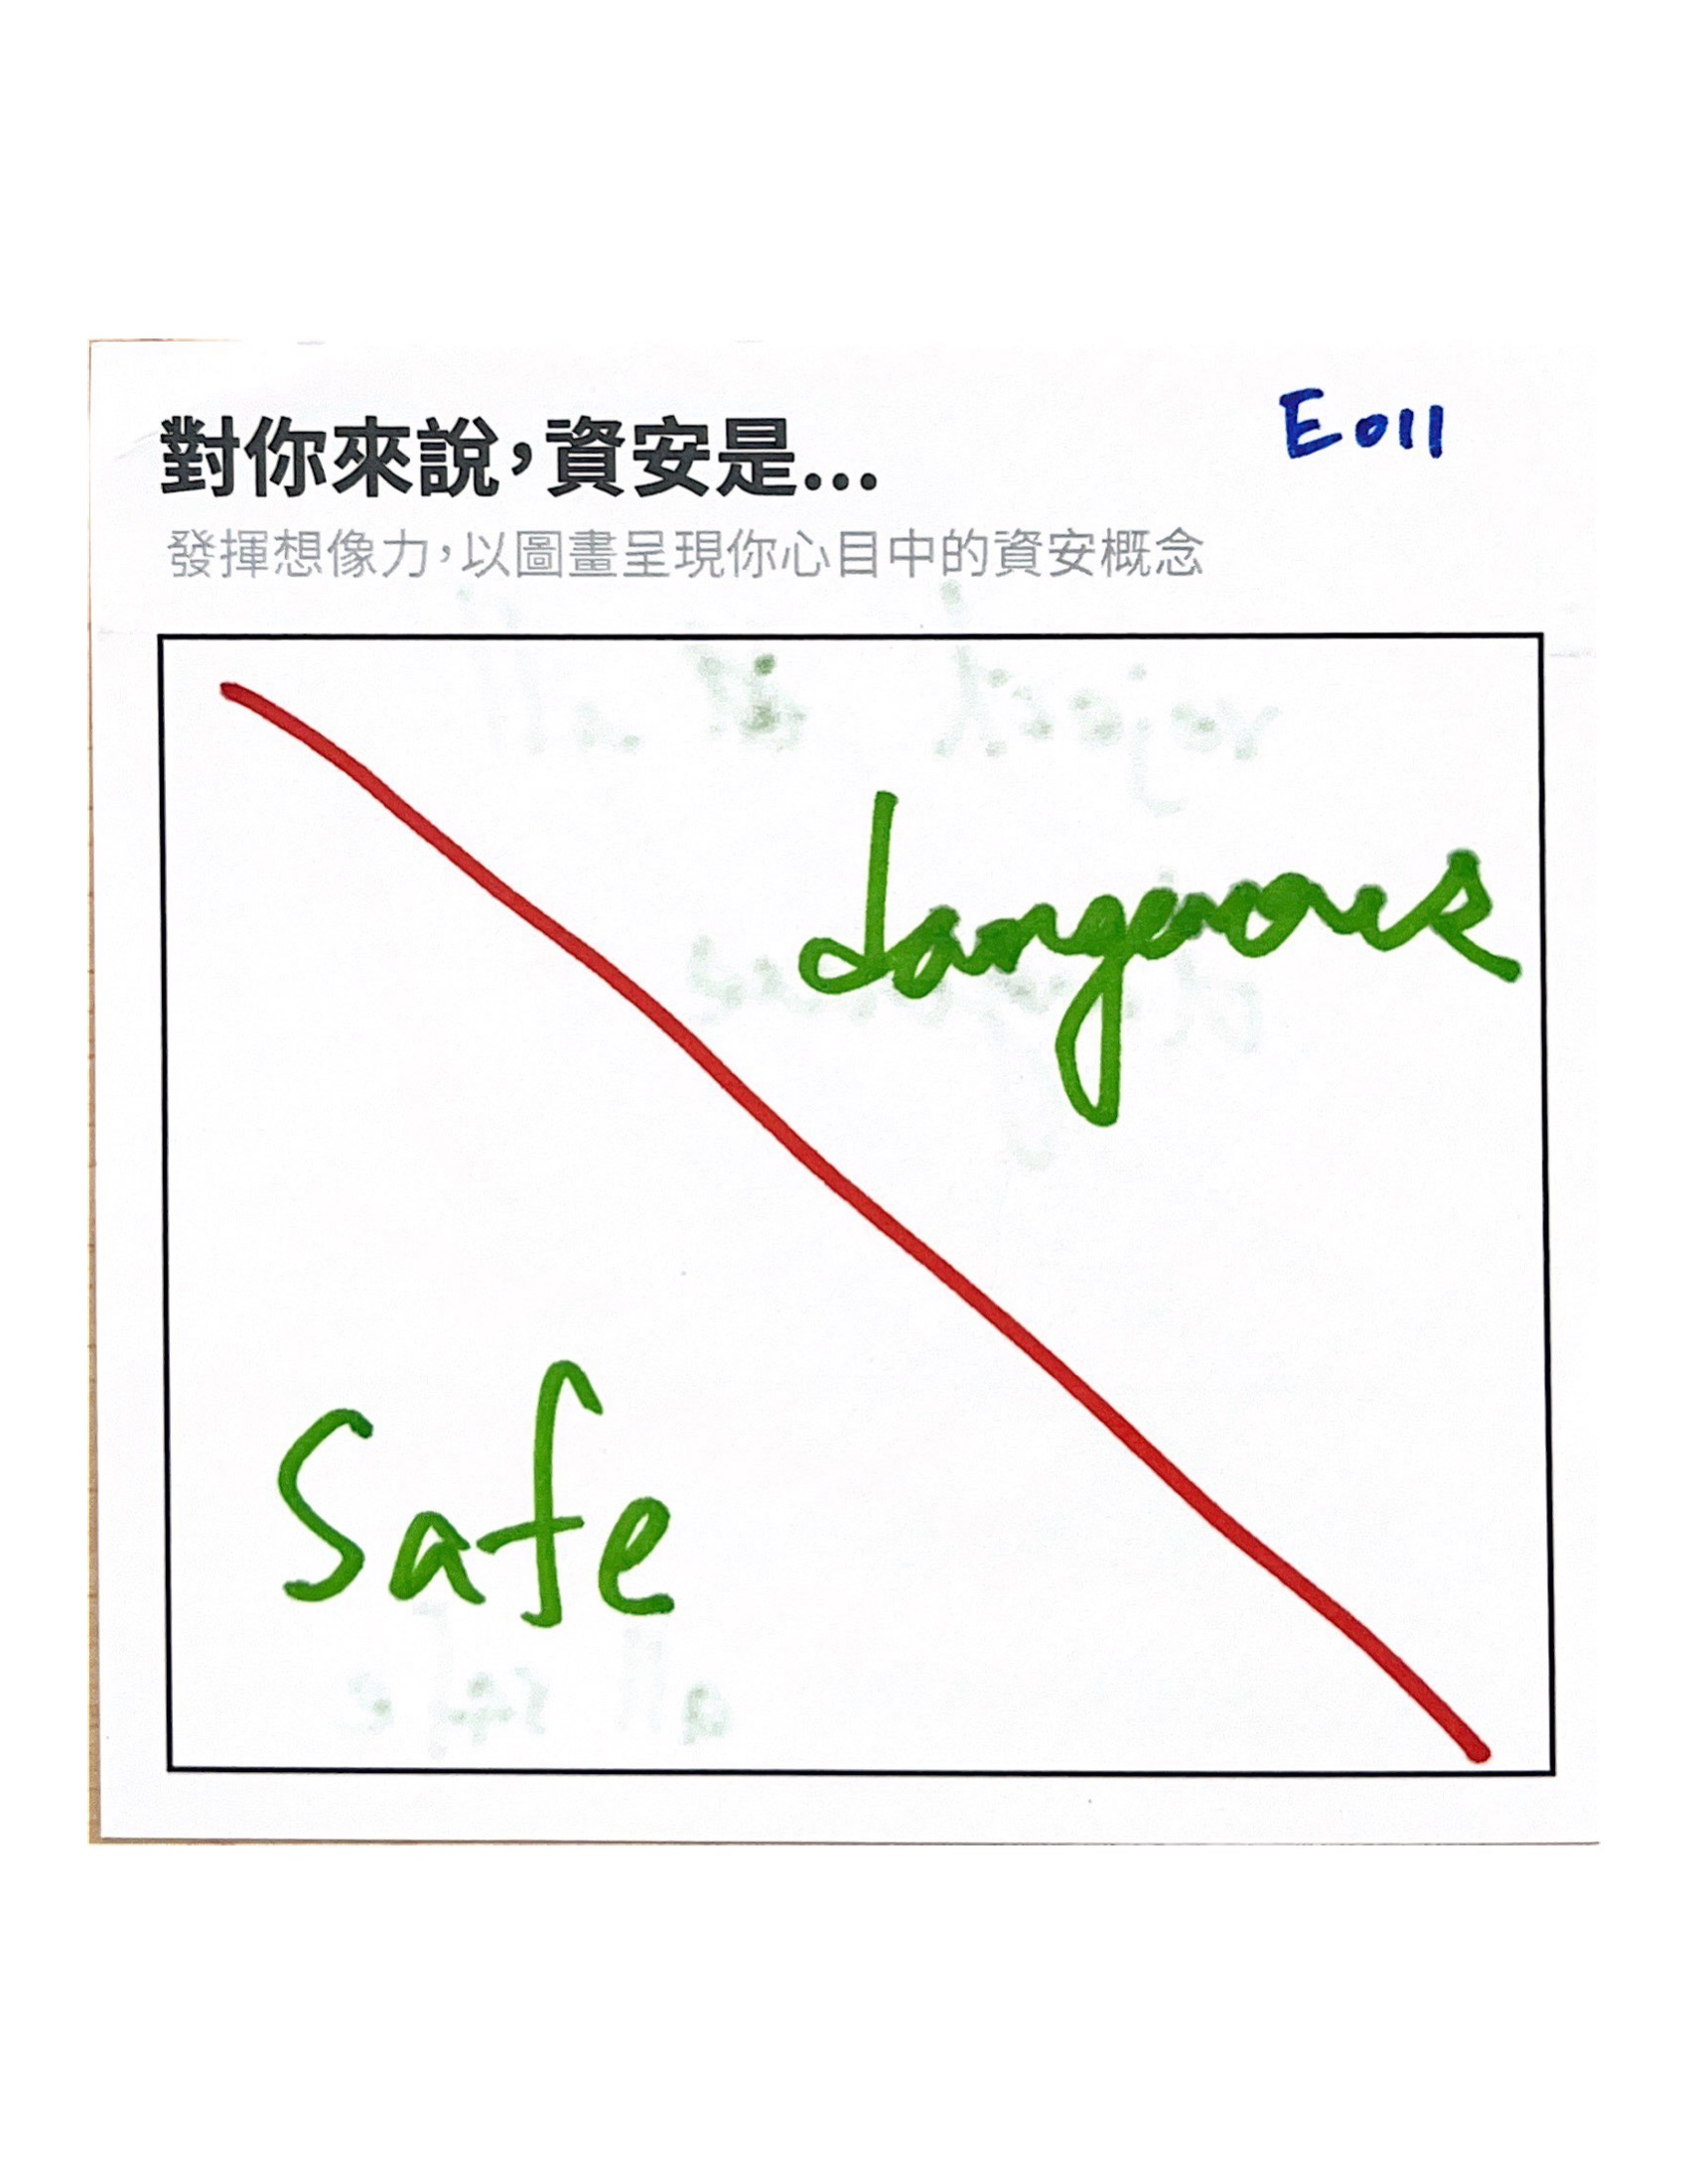 對你來說，資安是...
E011
發揮想像力，以圖畫呈現你心目中的資安概念
dangerous
Safe